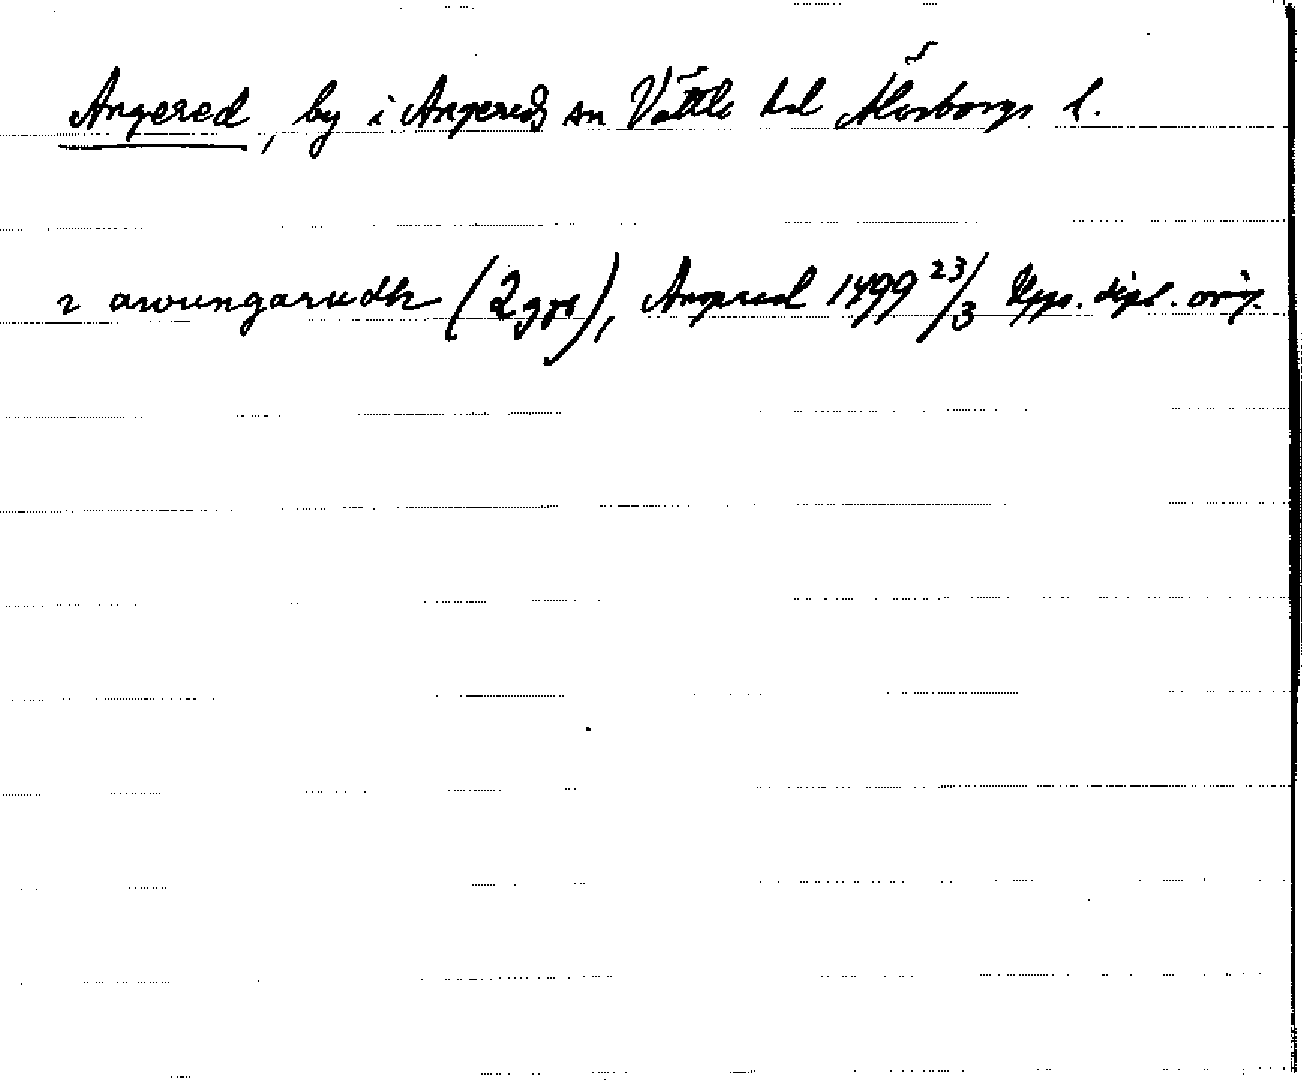 Angered, by i Angereds sn Vättle hd Älvsborgs l.
i awungarudh (2 ggr), Angered 1499 23/3 Upps. dipl. orig.